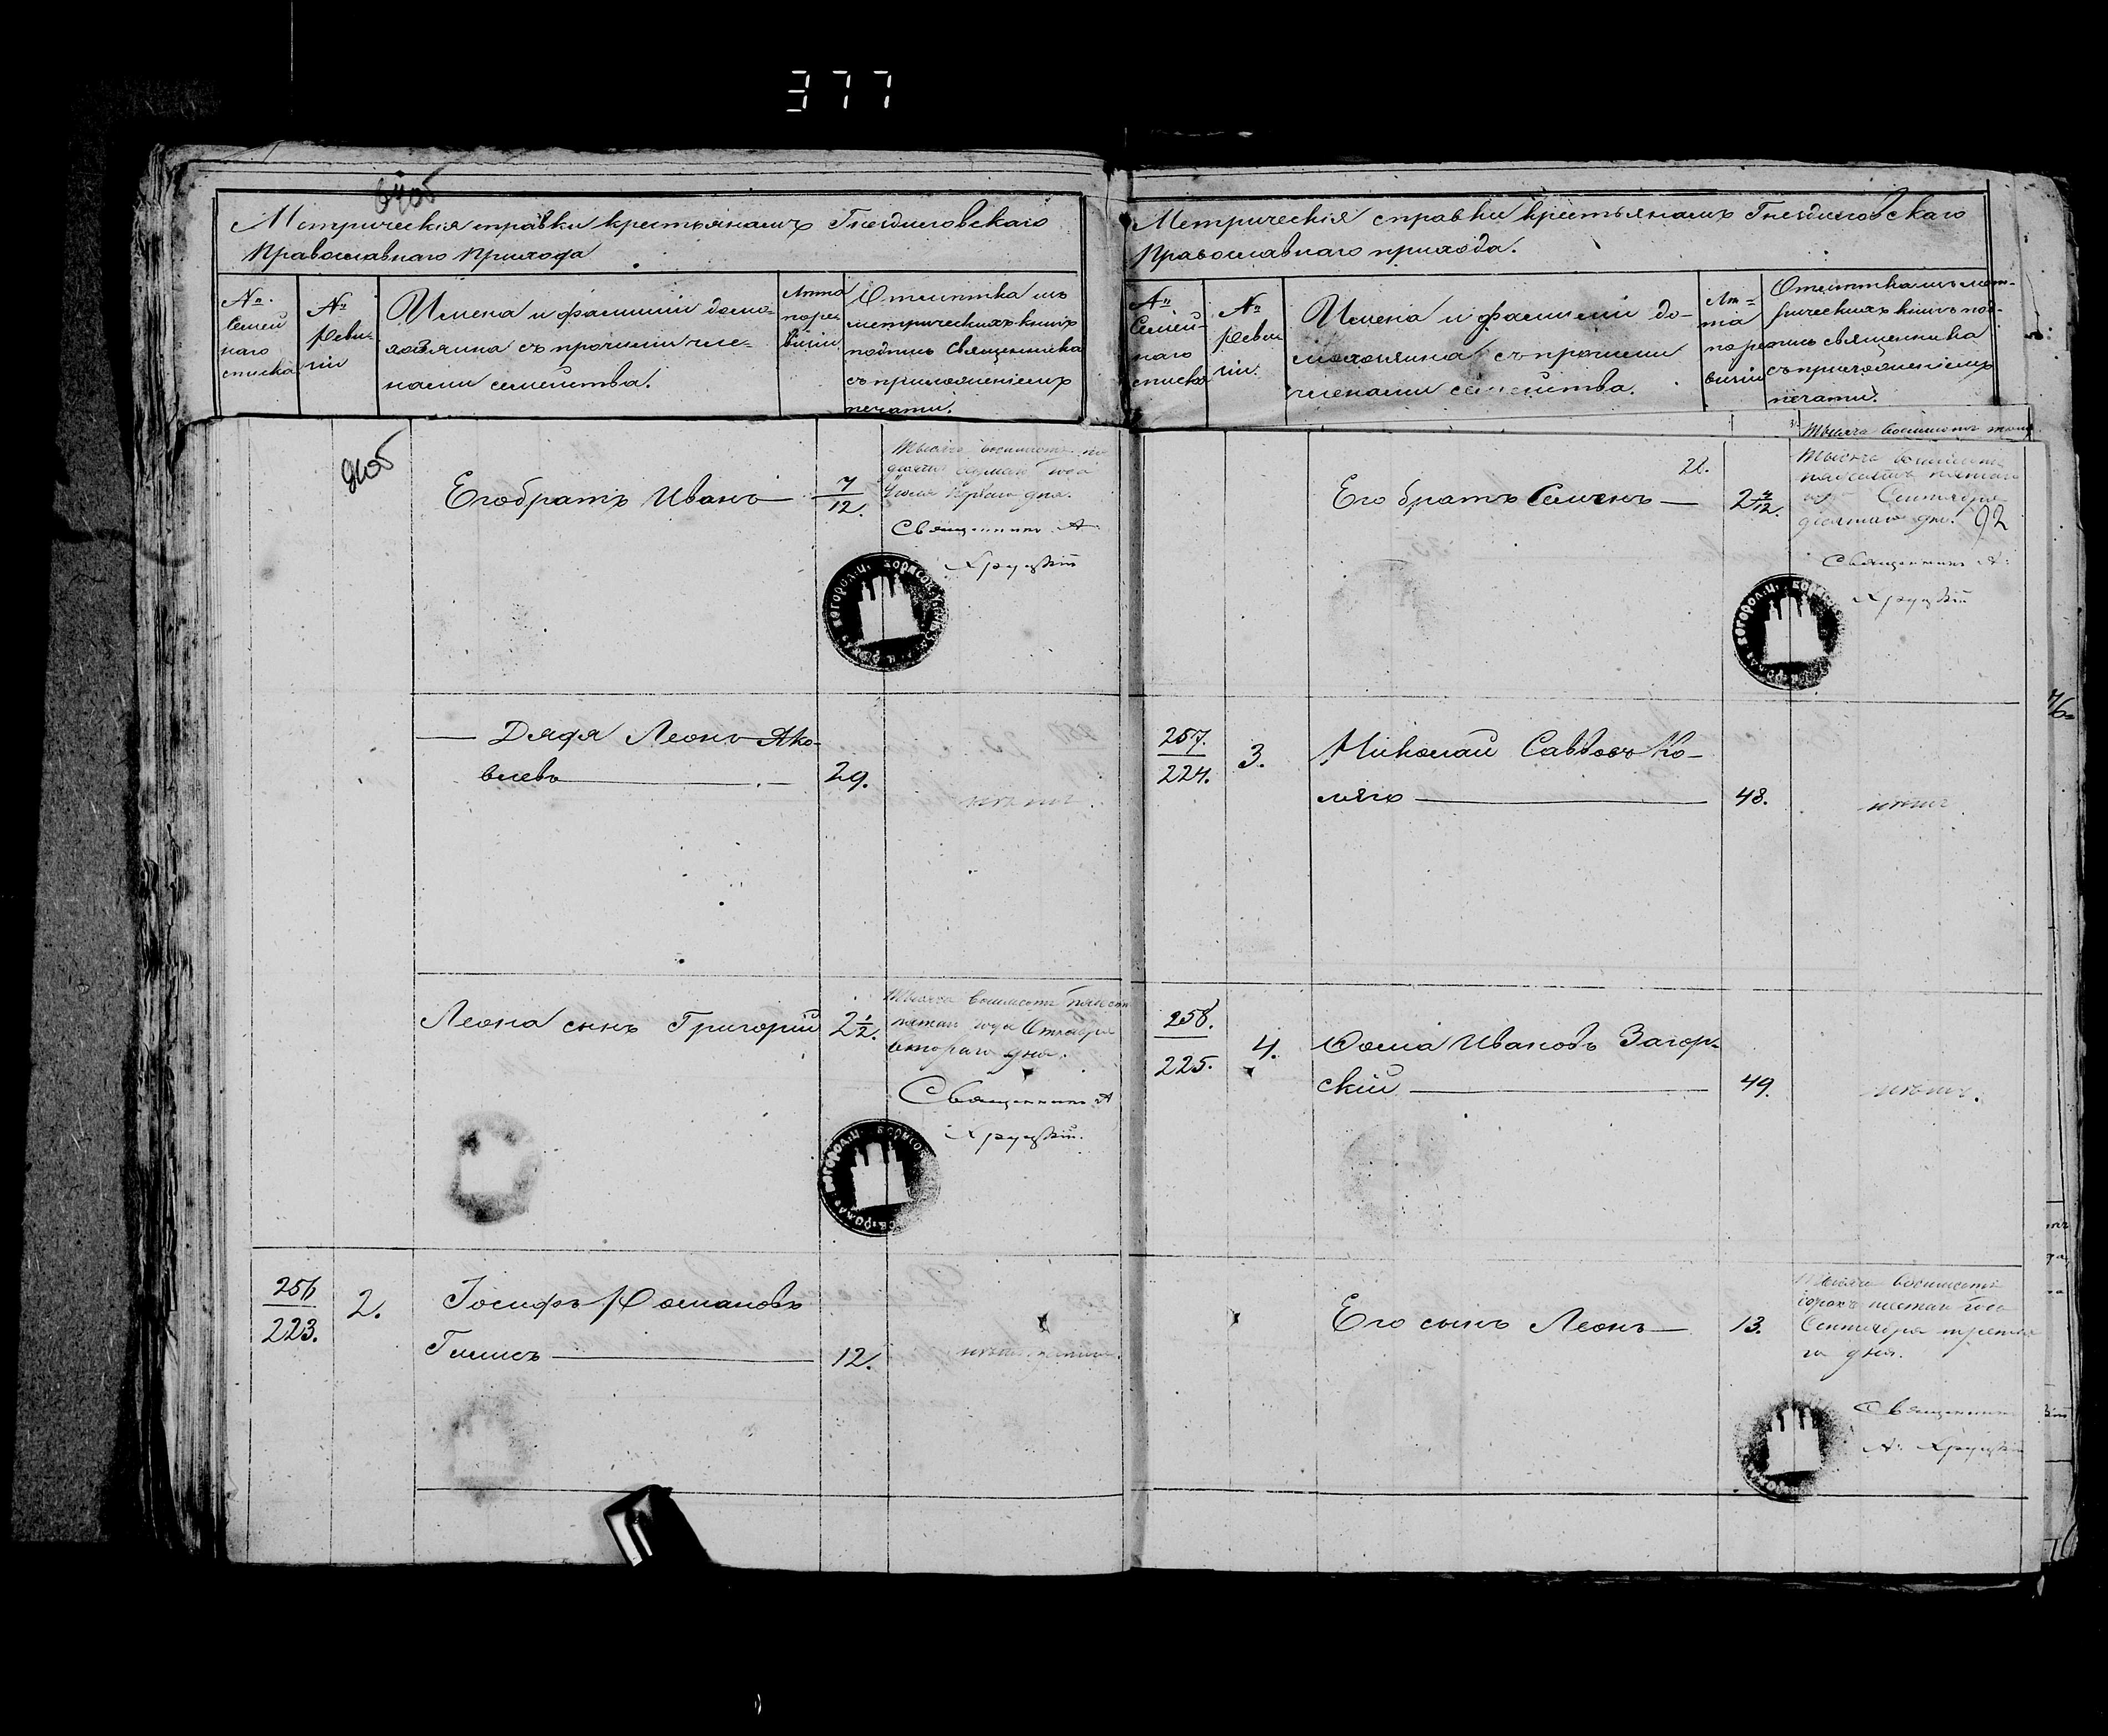 377
Метрическія справки крестьянамъ Гнездиловскаго
Православнаго Прихода
№
Семей
наго
списка
№
Реви-
зіи
Имена и фамиліи домо-
хозяина съ прочими чле-
нами семейства.
Лѣта
по ре
визіи
Отмѣтка изъ
метрическихъ книгъ
подпись Священника
съ приложеніемъ
печати.
Его братъ Иванъ
7/12.
Іюля перваго дня.
Священникъ А
Хруцкій
Дядя Леонъ Яко-
влевъ
29.
нѣтъ.
Леона сынъ Григорій
2 1/2.
Тысяча восемсотъ
пятаго года Октября
втораго дня.
Священникъ А
Хруцкій.
256
223.
2.
Іосифъ Романовъ
12.
Метрическія справки крестьянамъ Гнездиловскаго
Православнаго прихода.
№
Семей-
наго
списка
№
Реви
зіи.
Имена и фамиліи до-
мохозяина съ прочими
членами семейства.
Лѣ-
та
по ре
визіи
Отмѣтка изъ мет-
рическихъ книгъ под-
пись священника
съ приложеніемъ
печати.
Тысяча восемсотъ
22.
Его братъ Семенъ
2 4/12.
Тысяча
Сентября
дня.
92
Священникъ А:
Хруцкій
257.
224.
3.
Николай Савковъ Ко-
ляго
48.
нѣтъ
258.
225.
4.
Фома Ивановъ Загор-
скій
49.
нѣтъ.
Его сынъ Леонъ
13.
Тысяча восемсотъ
сорокъ шестаго года
Сентября третья
го дня.
Священникъ
А: Хруцкій